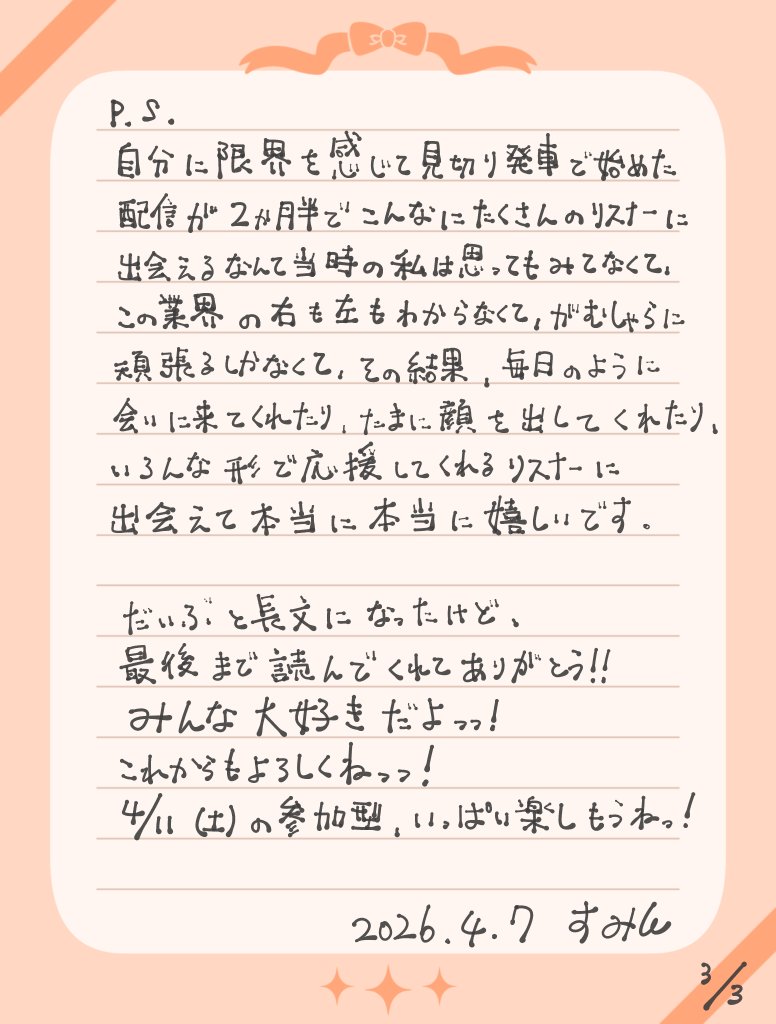 P.S.
自分に限界を感じて見切り発車で始めた
配信が2か月半でこんなにたくさんのリスナーに
出会えるなんて当時の私は思ってもみてなくて、
この業界の右も左もわからなくて、がむしゃらに
頑張るしかなくて、その結果、毎日のように
会いに来てくれたり、たまに顔を出してくれたり、
いろんな形で応援してくれるリスナーに
出会えて本当に本当に嬉しいです。
だいぶと長文になったけど、
最後まで読んでくれてありがとう!!
みんな大好きだよっっ!
これからもよろしくねっっ!
4/11(土)の参加型、いっぱい楽しもうねっ!
2026.4.7 すみれ
3/3